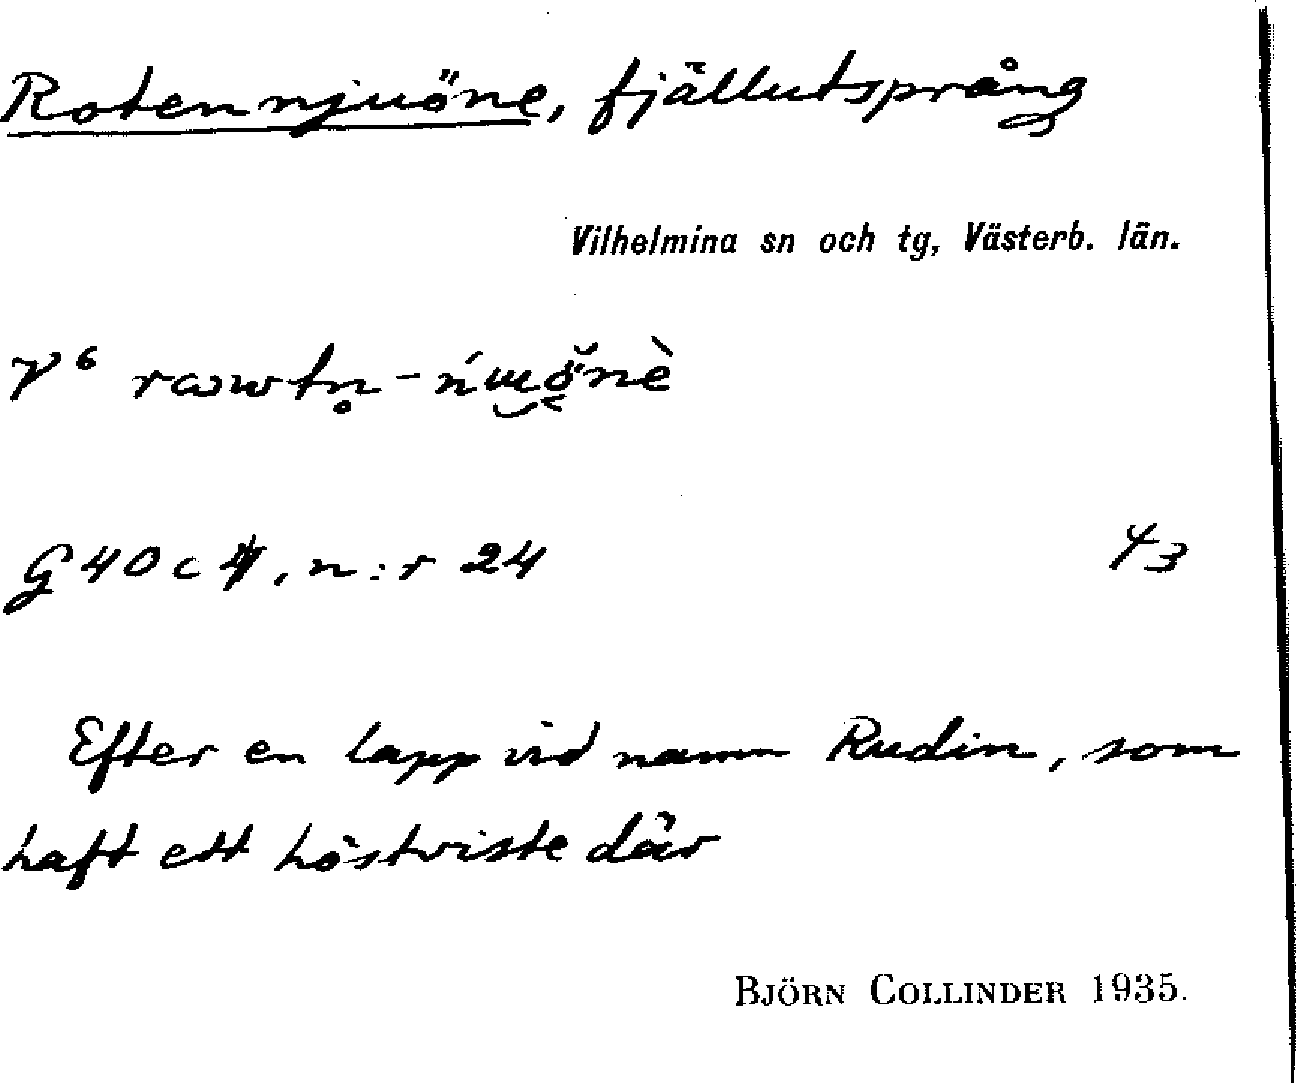 Rotennjuöne, fjällutsprång
Vilhelmina sn och tg, Västerb. län.
G 40 c 4, n:r 24
Efter en lapp vid namn Rudin, som
haft ett höstviste där
BJÖRN COLLINDER 1935.